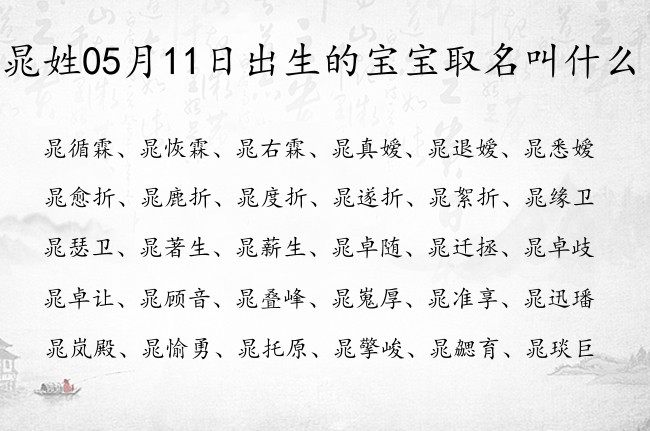 晁姓05月11日出生的宝宝取名叫什么
晁循霖、晁恢霖、晁右霖、晁真嫒、晁退嫒、晁悉嫒
晁愈折、晁鹿折、晁度折、晁遂折、晁絮折、晁缘卫
晁瑟卫、晁著生、晁薪生、晁卓随、晁迁拯、晁卓歧
晁卓让、晁顾音、晁叠峰、晁嵬厚、晁准享、晁迅璠
晁岚殿、晁愉勇、晁托原、晁擎峻、晁勰育、晁琰巨